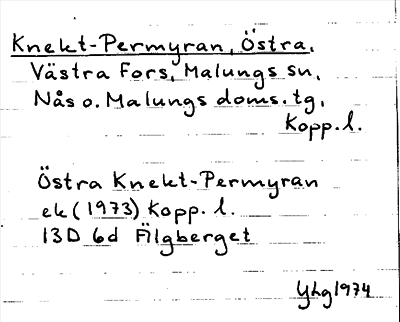 Knekt-Permyran, Östra.
Västra Fors, Malungs sn,
Nås o. Malungs doms. tg,
Kopp. l.
Östra Knekt-Permyran
ek (1973) Kopp. l.
13D 6d Älgberget
YLg 1974